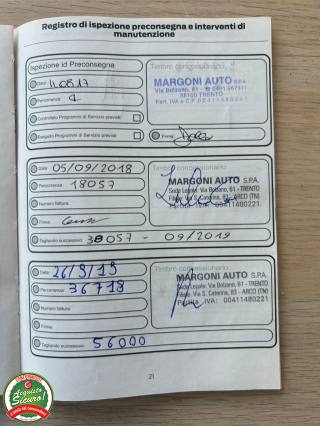 Registro di ispezione preconsegna e interventi di
manutenzione
Ispezione id Preconsegna
Timbro concessionario
Data:
Percorrenza:
MARGONI AUTO S.P.A.
38100 TRENTO
Controllato Programmi di Servizio previsti
Eseguito Programmi di Servizio previsti
Firma:
Data: 05/09/2018
Timbro concessionario
Percorrenza: 18057
MARGONI AUTO S.P.A.
Sede Legale: Via Bolzano, 61 - TRENTO
Filiale: Via S. Caterina, 83 - ARCO (TN)
Partita IVA: 00411480221
Numero fattura:
Firma:
Tagliando successivo: 38057 - 09/2019
Data: 26/9/19
Timbro concessionario
Percorrenza: 36718
MARGONI AUTO S.P.A.
Sede Legale: Via Bolzano, 61 - TRENTO
Filiale: Via S. Caterina, 83 - ARCO (TN)
Partita IVA: 00411480221
Numero fattura:
Firma:
Tagliando successivo: 56000
21
Acquisto
Sicuro!